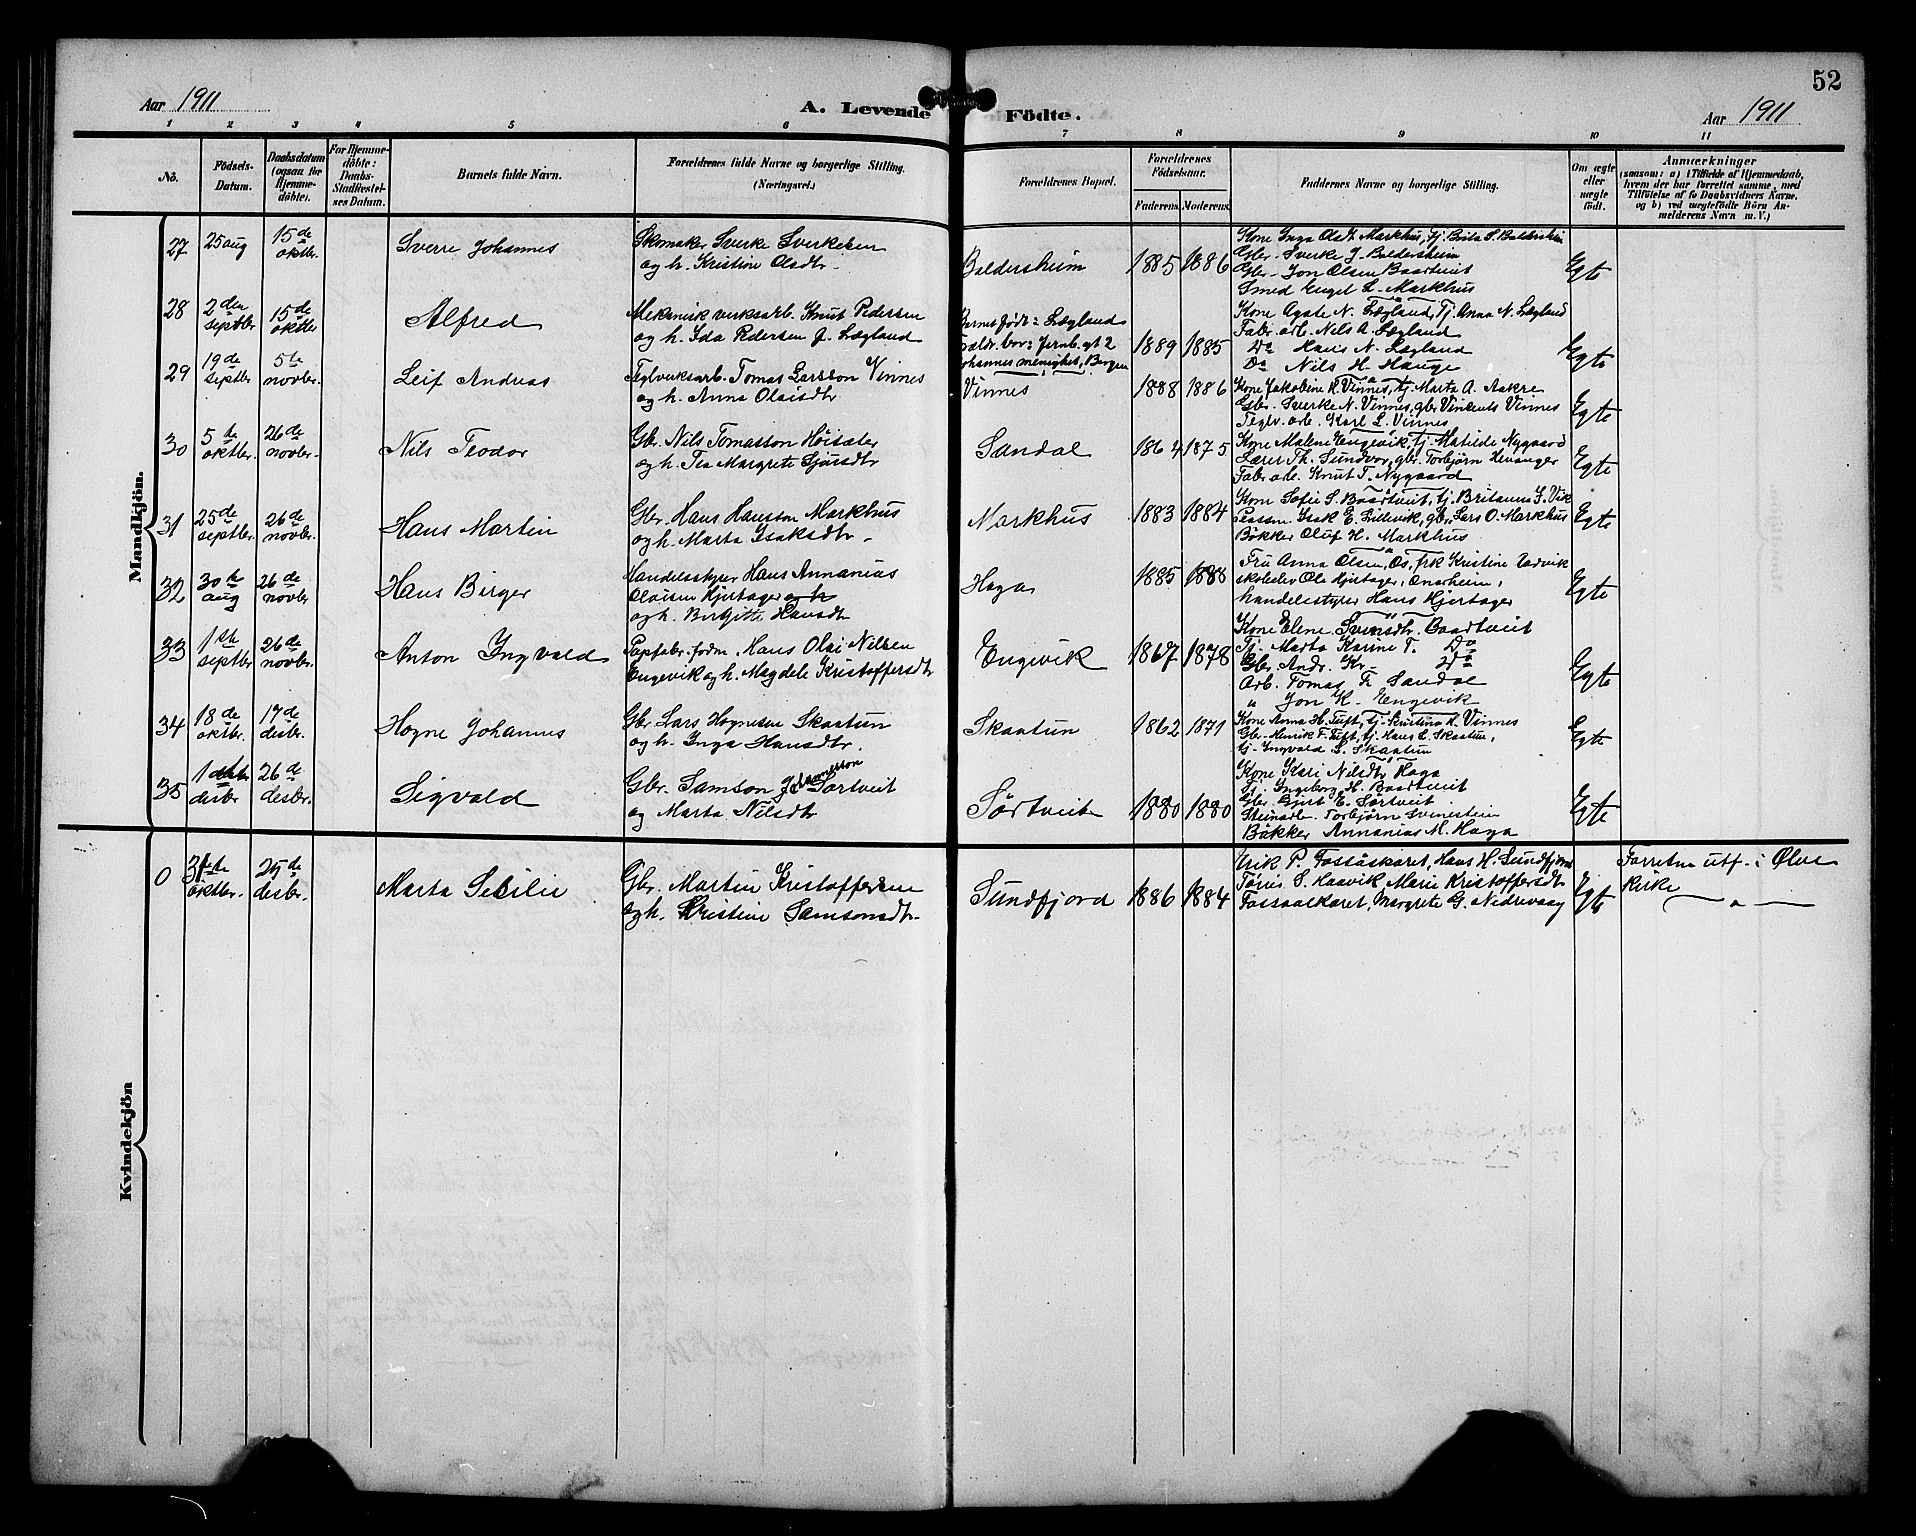 52
Aar 1911
A. Levende
Födte.
Aar 1911
1 2 3 4 5 6 7 8 9 10 11
Nö.
Födsels-
Datum.
Daabsdatum
(ogsaa for
Hjemme-
döbte).
For Hjemme-
döbte:
Daabs-
Stadfæstel-
ses Datum.
Barnets fulde Navn.
Forældrenes fulde Navne og borgerlige Stilling.
(Næringsvei.)
Forældrenes Bopæl.
Forældrenes
Födselsaar.
Faderens. Moderens.
Faddernes Navne og borgerlige Stilling.
Om ægte
eller
uægte
födt.
Anmærkninger
(saasom: a) i Tilfælde af Hjemmedaab,
hvem der har forrettet samme, med
Tilföielse af to Daabsvidners Navne,
og b) ved uægtefödte Börn An-
melderens Navn m. V.)
Mandkjön.
27
25 aug
15de
oktbr.
Sverre Johannes
Skomaker Sverke Sverkesen
og h. Kristine Olsdtr.
Baldersheim
1885 1886
Kone Inga Olsdt Markhus, tj. Brita S. Baldersheim
Gbr. Sverke J. Baldersheim
Gbr. Jon Olsen Baartveit
Smed Engel L. Markhus
Egte
28
2den
septbr
15de
oktbr
Alfred
Mekanisk verksarb. Knut Pedersen
og h. Ida Pedersen f. Lægland
Barnet født: Lægland
foældr. bor: Jernb. gt 2
Johannes menighet, Bergen
1889 1885
Kone Agate N. Lægland, Tj. Anna N. Lægland
Fabr. arb. Nils A. Lægland
Do Hans N. Lægland
Do Nils H. Hauge
Egte
29
19de
septbr
5te
novbr.
Leif Andreas
Teglverksarb. Tomas Larsson Vinnes
og h. Anna Olaisdtr
Vinnes
1888 1886
Kone Jakobine K. Vinnes, tj. Marta A. Aakre
Gbr. Sverke N. Vinnes, gbr Vincents Vinnes
Teglv. arb. Karl L. Vinnes
Egte
30
5te
oktbr.
26de
novbr.
Nils Teodor
Gbr. Nils Tomasson Høisæter
og h. Tea Margrete Sjursdtr
Sandal
1864 1875
Kone Malene Engevik, tj. Matilde Nygaard
Lærer Th. Sundvor, gbr. Torbjørn Hevanger
Fabr. arb. Knut T. Nygaard
Egte
31
25de
septbr
26de
novbr.
Hans Martin
Gbr. Hans Hansson Markhus
og h. Marta Isaksdtr.
Markhus
1883 1884
Kone Sofie S. Baartveit, tj. Britanus J. Vik
Plassm Isak E. Lillevik, gbr. Lars O. Markhus
Bøkker Oluf H. Markhus
Egte
32
30te
aug
26de
novbr
Hans Birger
Handelsstyrer Hans Annanias
Olaisen Hjertager og h
og h. Birgitte Hansdtr
Haga
1885 1888
Fru Anna Olsen, Os, frk Kristine
skoleelev Ole Hjertager, Onarheim,
handelsstyrer Hans Hjertager
Egte
33
1ste
septbr
26de
novbr.
Anton Ingvald
Papfabr. form. Hans Olai Nilsen
Engevik og h. Magdele Kristoffersdtr
Engevik
1867 1878
Kone Elene Svensdtr. Baartveit
Tj. Marta Karine T. Do
Gbr. Andr. Kr. Do
Arb. Tomas T. Sandal
" Jon H. Engevik
Egte
34
18de
oktbr.
17de
desbr.
Hogne Johannes
Gbr Lars Hognesen Skaatun
og h. Inga Hansdtr.
Skaatun
1862 1871
Kone Anna H. Tuft, tj. Kristina K. Vinnes
Gbr. Henrik F. Tuft, tj. Hans L. Skaatun,
tj. Ingvald L. Skaatun
Egte
35
1ste
desbr
26de
desbr.
Sigvald
Gbr. Samson Johannesson Sørtveit
og Marta Nilsdtr
Sørtveit
1880 1880
Kone Kari Nilsdtr Haga
Tj. Ingeborg H. Baartveit
Gbr Gjert E. Sørtveit
Steinarb. Torbjørn Svinestein
Bøkker Annanias M. Haga
Egte
Kvindekjön
0
31te
oktbr.
25de
desbr.
Marta Sesilie
Gbr. Martin Kristoffersen
og h. Kristine Samsonsdtr.
Sundfjord
1886 1884
Erik P. Fossaskaret, Hans H. Sundfjord
Tøris S. Haavik, Marie Kristoffersdtr
Fossaalkaret, Margrete G. Nedrevaag
Egte
Forretn utf. i Ølve
Kirke